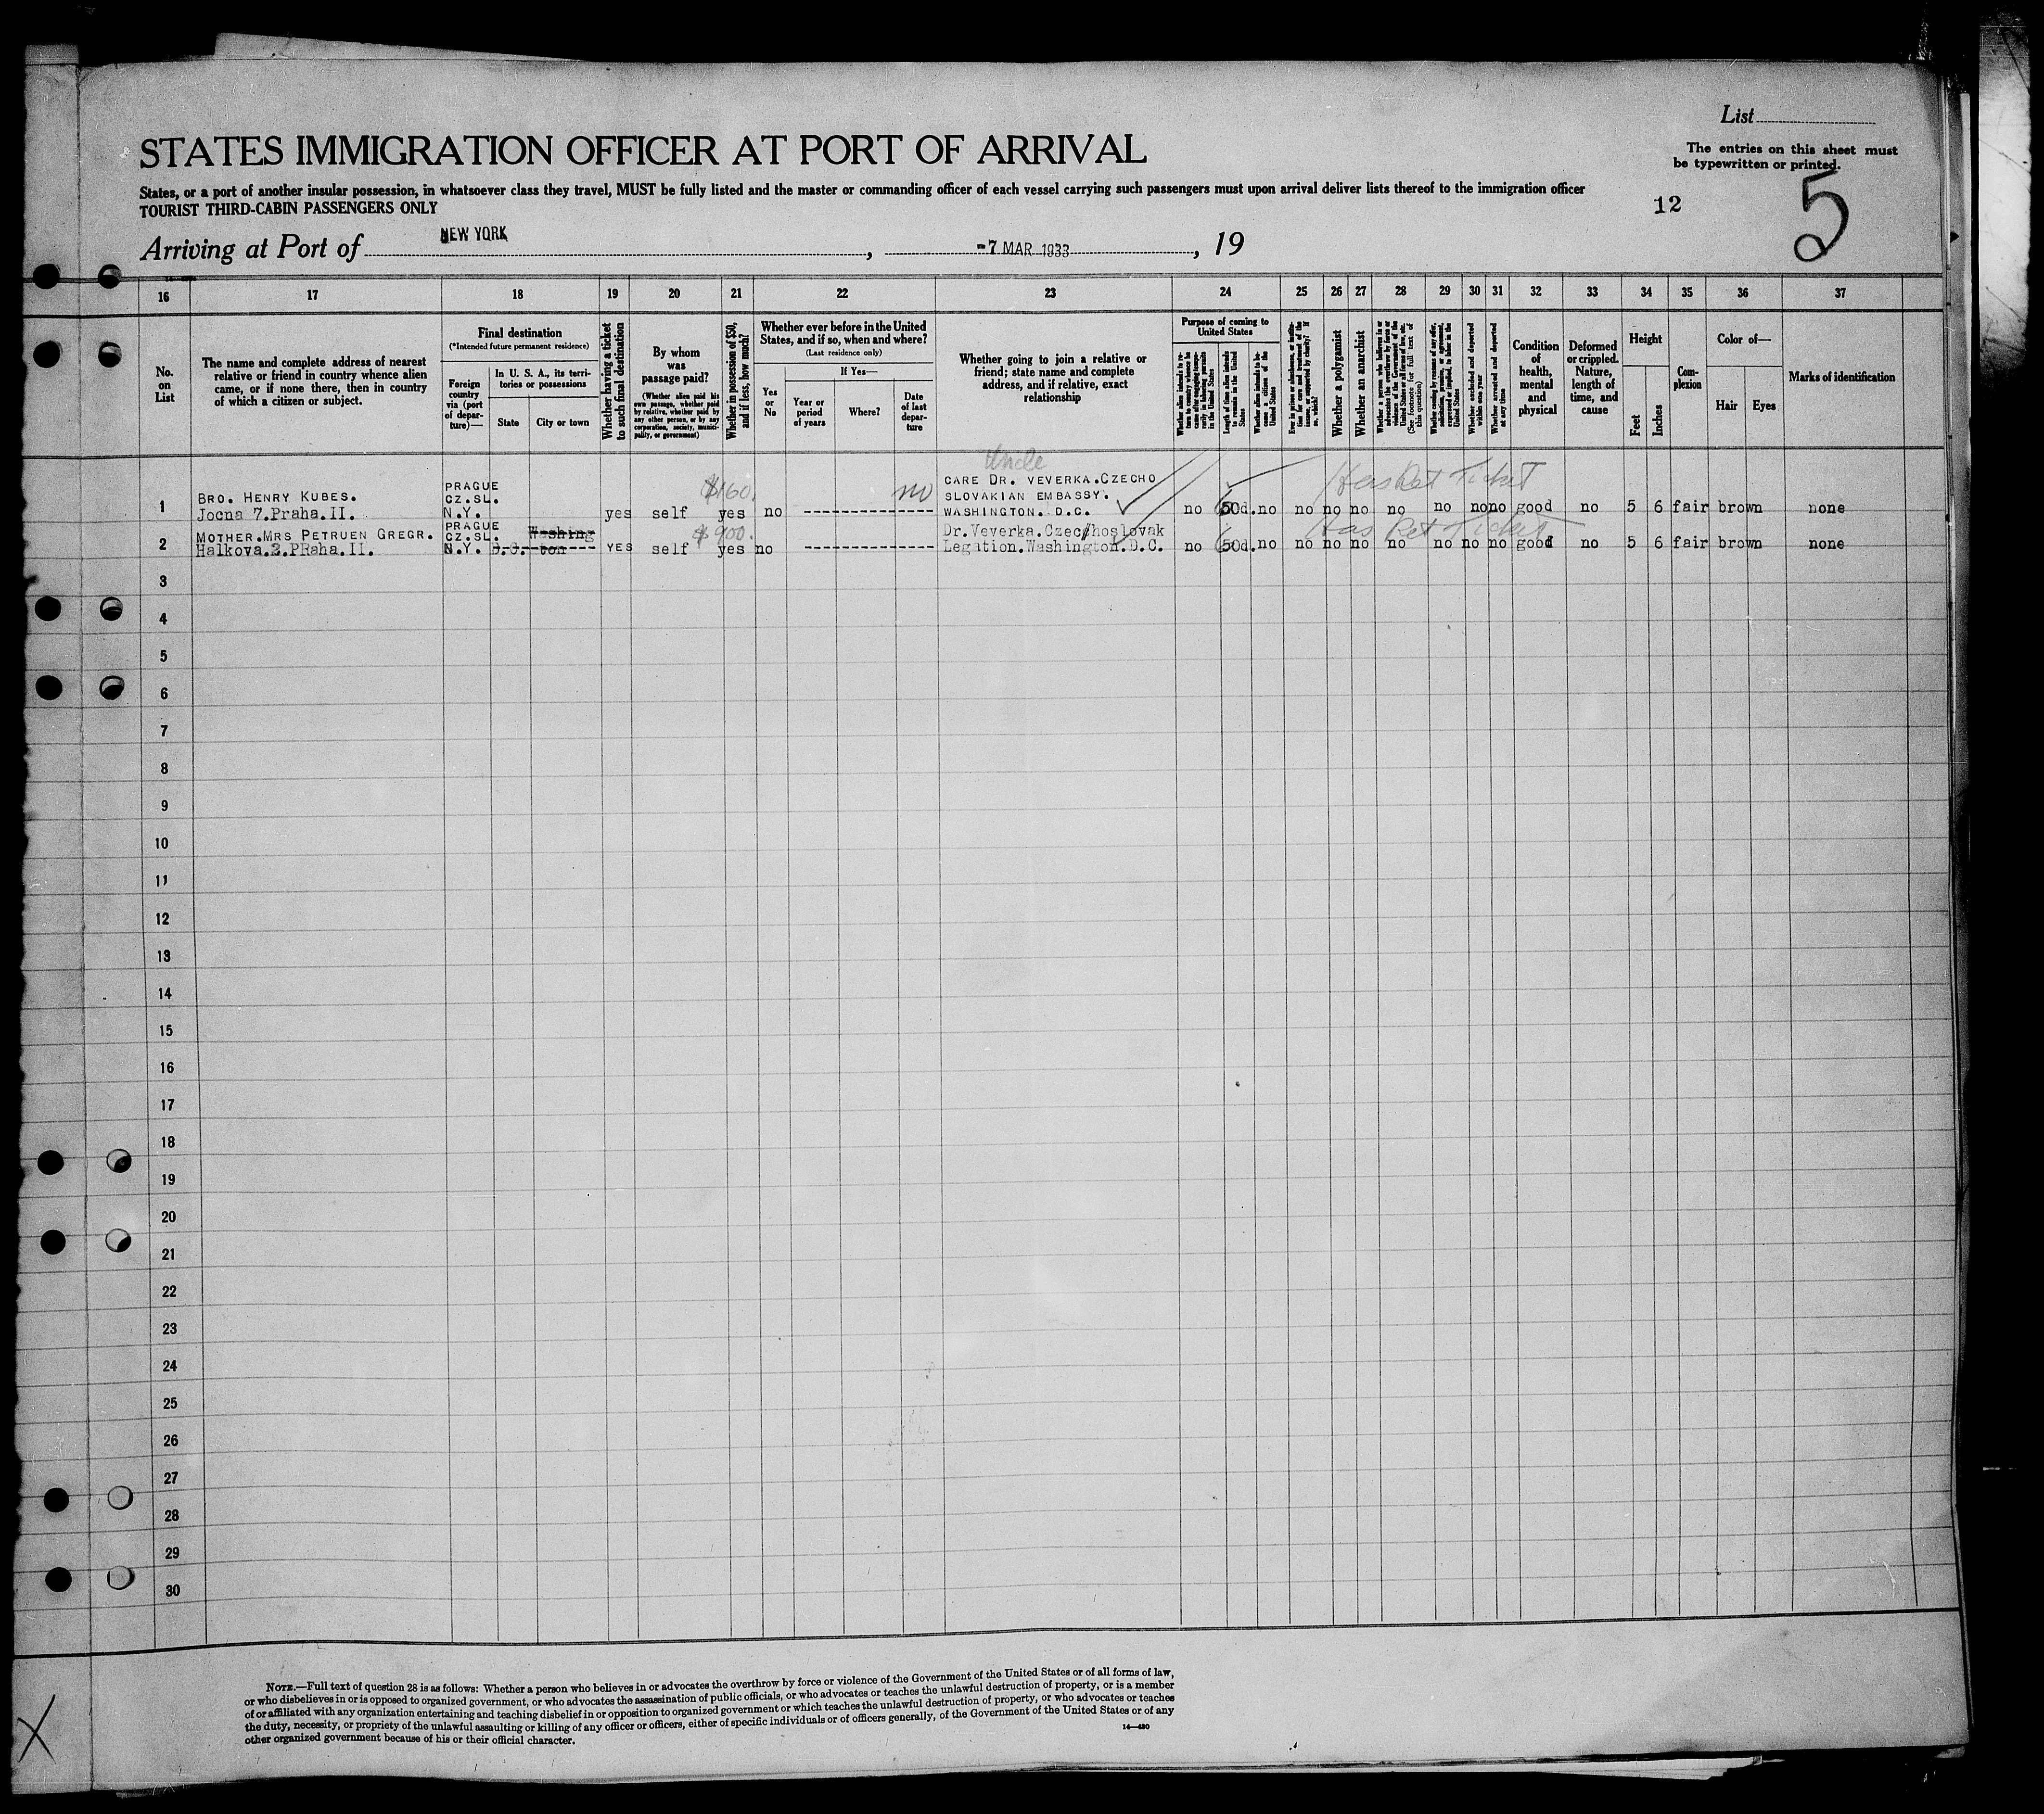 List
STATES IMMIGRATION OFFICER AT PORT OF ARRIVAL
The entries on this sheet must
be typewritten or printed.
States, or a port of another insular possession, in whatsoever class they travel, MUST be fully listed and the master or commanding officer of each vessel carrying such passengers must upon arrival deliver lists thereof to the immigration officer
TOURIST THIRD-CABIN PASSENGERS ONLY
12
5
Arriving at Port of NEW YORK, -7 MAR 1933, 19
16 17 18 19 20 21 22 23 24 25 26 27 28 29 30 31 32 33 34 35 36 37
No.
on
List
The name and complete address of nearest
relative or friend in country whence alien
came, or if none there, then in country
of which a citizen or subject.
Final destination
(*Intended future permanent residence)
Foreign
country
via (port
of depar-
ture)—
In U. S. A., its terri-
tories or possessions
State
City or town
Whether having a ticket
to such final destination
By whom
was
passage paid?
(Whether alien paid his
own passage, whether paid
by relative, whether paid by
any other person, or by any
corporation, society, munici-
pality, or government)
Whether in possession of $50,
and if less, how much?
Whether ever before in the United
States, and if so, when and where?
(Last residence only)
Yes
or
No
If Yes—
Year or
period
of years
Where?
Date
of last
depar-
ture
Whether going to join a relative or
friend; state name and complete
address, and if relative, exact
relationship
Purpose of coming to
United States
Whether alien intends to re-
turn to country whence he
came after engaging tempo-
rarily in laboring pursuits
in the United States
Length of time alien intends
to remain in the United
States
Whether alien intends to be-
come a citizen of the
United States
Ever in prison or almshouse, or institu-
tion for care and treatment of the
insane, or supported by charity? If
so, which?
Whether a polygamist
Whether an anarchist
Whether a person who believes in or
advocates the overthrow by force or
violence of the Government of the
United States or all forms of law, etc.
(See footnote for full text of
this question)
Whether coming by reason of any offer,
solicitation, promise, or agreement,
expressed or implied, to labor in the
United States
Whether excluded and deported
within one year
Whether arrested and deported
at any time
Condition
of
health,
mental
and
physical
Deformed
or crippled.
Nature,
length of
time, and
cause
Height
Feet
Inches
Com-
plexion
Color of—
Hair
Eyes
Marks of identification
Uncle
PRAGUE $160. no CARE DR. VEVERKA.CZECHO Has Ret Ticket
BRO. HENRY KUBES. CZ.SL. SLOVAKIAN EMBASSY.
1 Jocna 7.Praha.II. N.Y. yes self yes no ------------- WASHINGTON. D.C. no 60d. no no no no no no no no good no 5 6 fair brown none
PRAGUE Washing $900. Dr.Veverka.Czec/hoslovak Has Ret Ticket
MOTHER.MRS PETRUEN GREGR. CZ.SL.
2 Halkova.2.PRaha.II. N.Y. D.C. ton------ YES self yes no ------------- Legation.Washington.D.C. no 60d. no no no no no no no no good no 5 6 fair brown none
3
4
5
6
7
8
9
10
11
12
13
14
15
16
17
18
19
20
21
22
23
24
25
26
27
28
29
30
NOTE.—Full text of question 28 is as follows: Whether a person who believes in or advocates the overthrow by force or violence of the Government of the United States or of all forms of law,
or who disbelieves in or is opposed to organized government, or who advocates the assassination of public officials, or who advocates or teaches the unlawful destruction of property, or is a member
of or affiliated with any organization entertaining and teaching disbelief in or opposition to organized government or which teaches the unlawful destruction of property, or who advocates or teaches
the duty, necessity, or propriety of the unlawful assaulting or killing of any officer or officers, either of specific individuals or of officers generally, of the Government of the United States or of any
other organized government because of his or their official character.
14—480
X